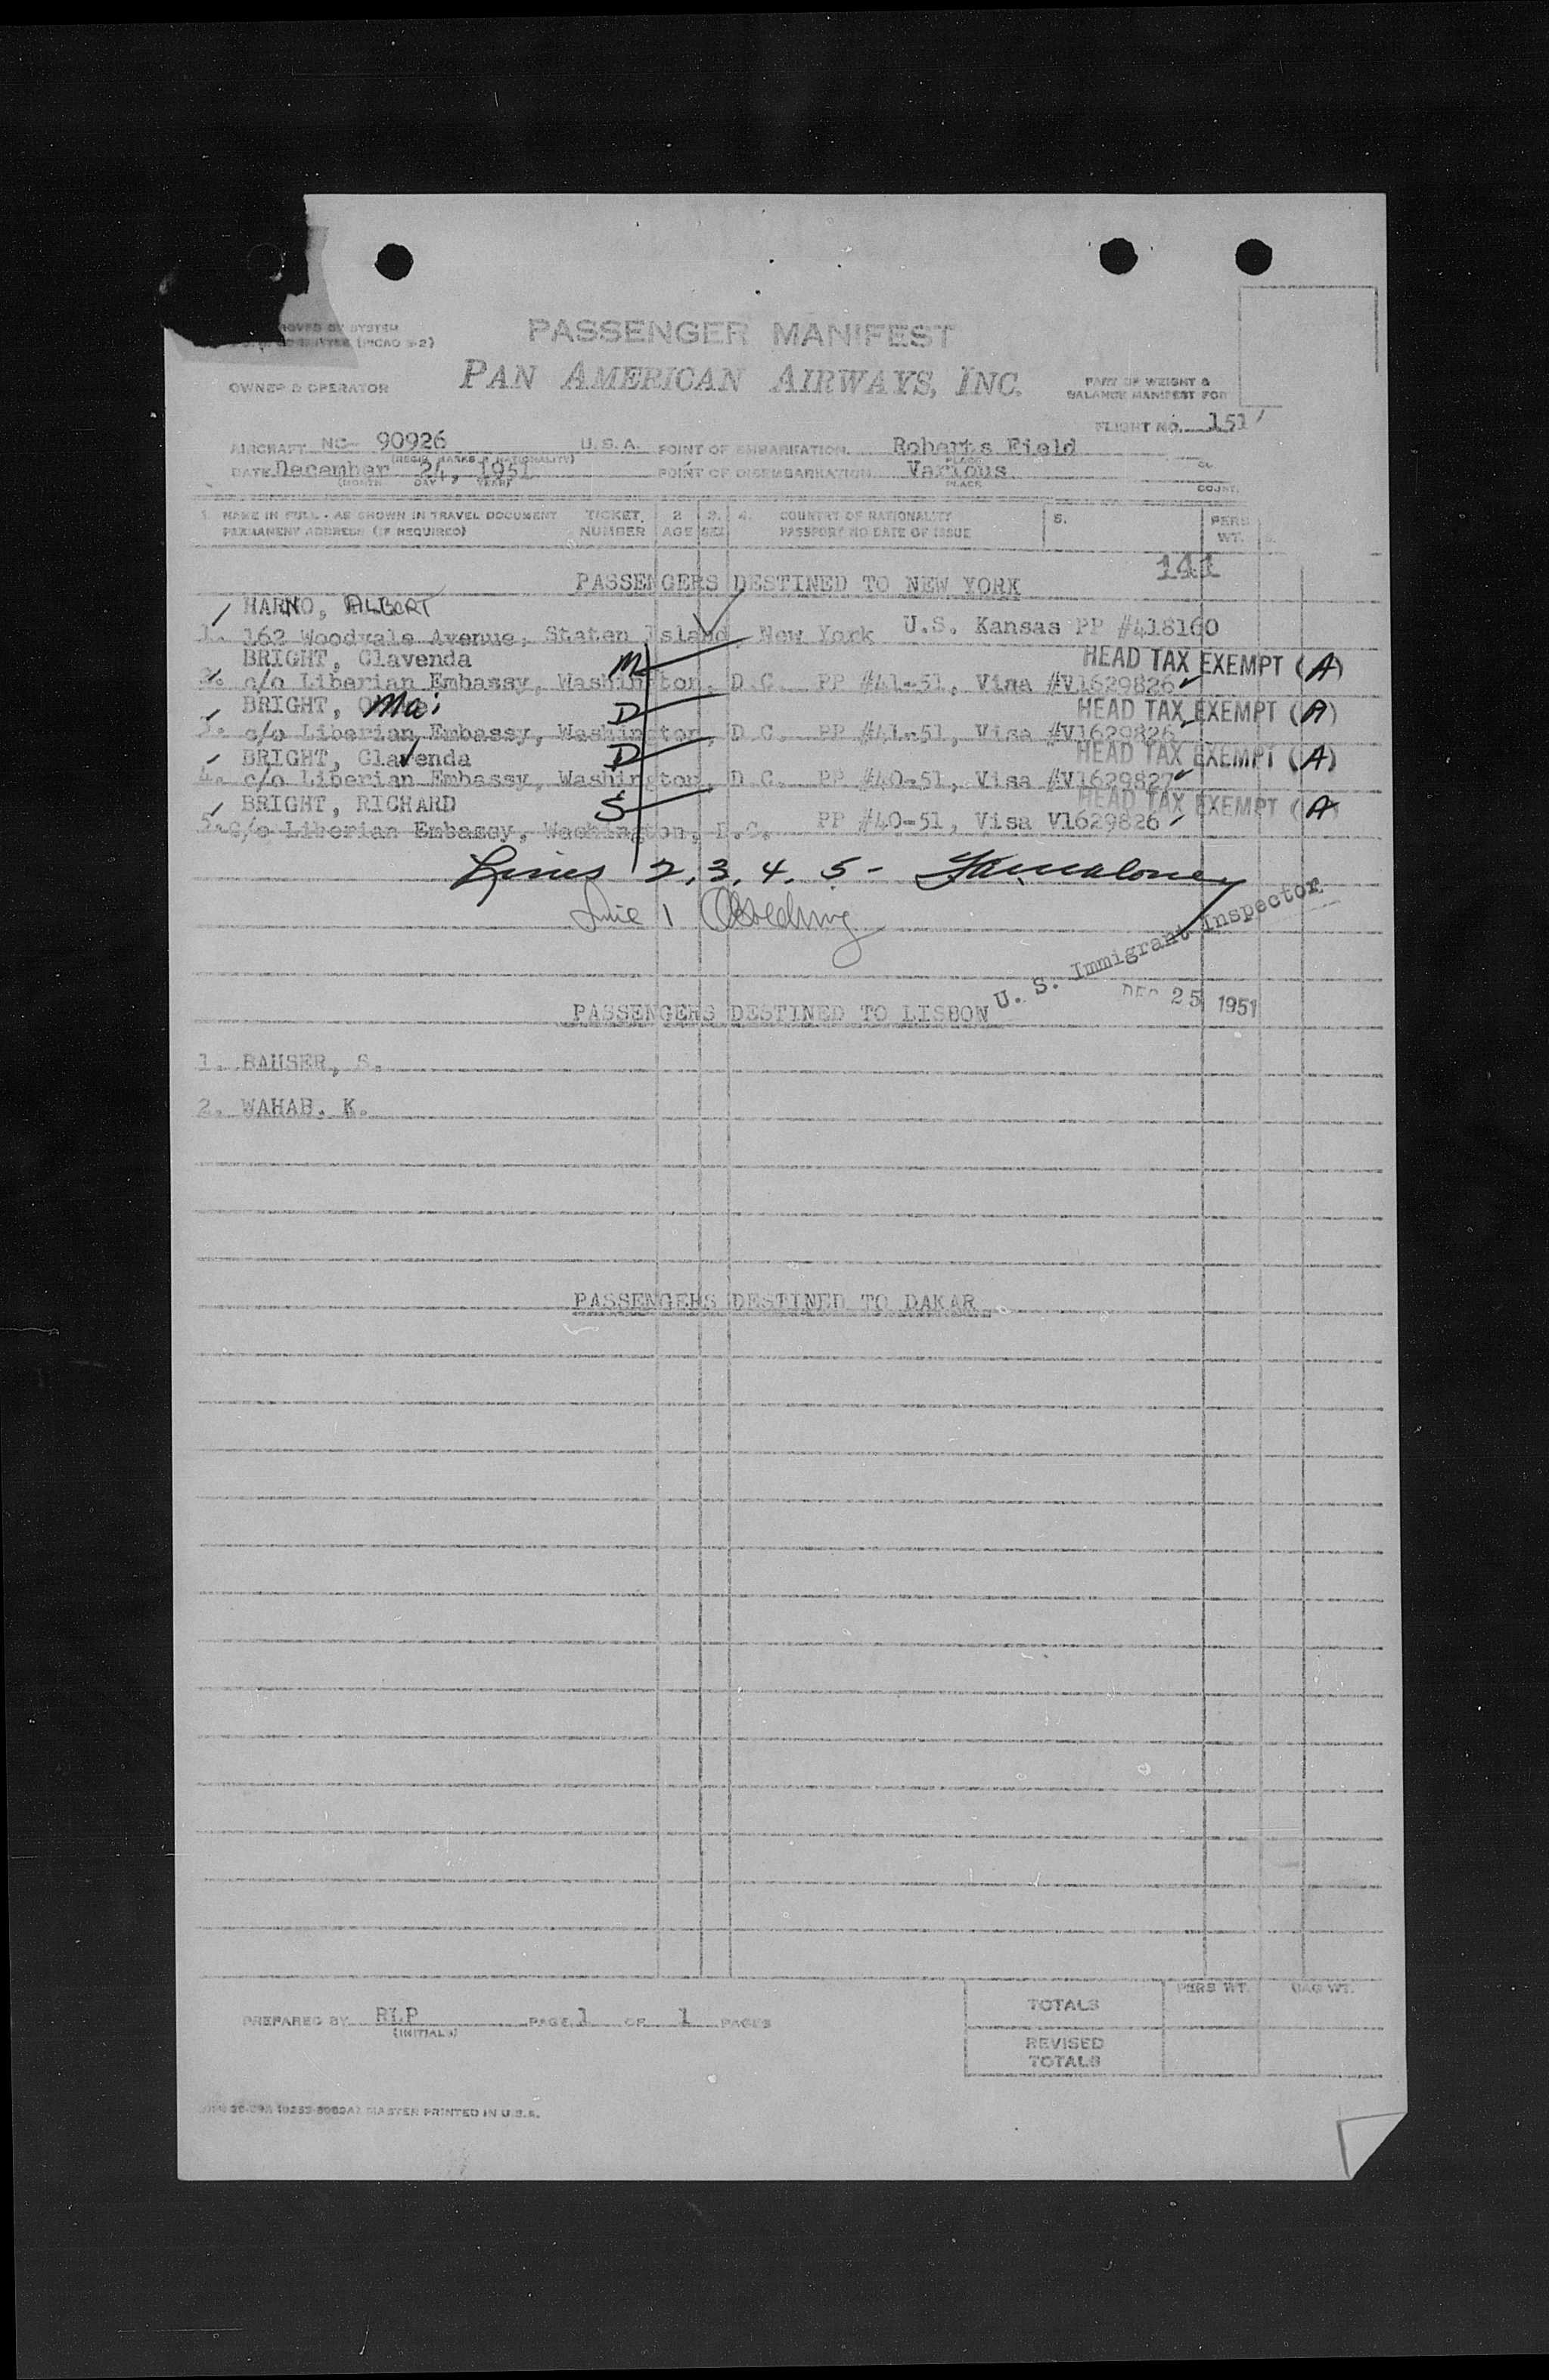 PASSENGER MANIFEST
PAN AMERICAN AIRWAYS, INC.
OWNER & OPERATOR
PART OF WEIGHT &
BALANCE MANIFEST FOR
FLIGHT NO. 151
AIRCRAFT NC- 90926 U.S.A. POINT OF EMBARKATION Roberts Field
DATE December 24, 1951 POINT OF DISEMBARKATION Various
COUNT.
1. NAME IN FULL - AS SHOWN IN TRAVEL DOCUMENT TICKET 2 3. 4. COUNTRY OF NATIONALITY 5. PERS
PERMANENT ADDRESS (IF REQUIRED) NUMBER AGE SEX PASSPORT NO DATE OF ISSUE WT.
141
PASSENGERS DESTINED TO NEW YORK
HARNO, ALBERT
1. 162 Woodvale Avenue, Staten Island, New York U.S. Kansas PP #418160
BRIGHT, Clavenda M HEAD TAX EXEMPT (A)
2. c/o Liberian Embassy, Washington, D.C. PP #41-51, Visa #V1629826
BRIGHT, Mai D HEAD TAX EXEMPT (A)
3. c/o Liberian Embassy, Washington, D.C. PP #41-51, Visa #V1629826
BRIGHT, Clavenda D HEAD TAX EXEMPT (A)
4. c/o Liberian Embassy, Washington, D.C. PP #40-51, Visa #V1629827
BRIGHT, RICHARD S HEAD TAX EXEMPT (A)
5. C/o Liberian Embassy, Washington, D.C. PP #40-51, Visa V1629826
Lines 2, 3, 4, 5 -
Line 1
U. S. Immigrant Inspector
DEC 25 1951
PASSENGERS DESTINED TO LISBON
1. BAUSER, S.
2. WAHAB, K.
PASSENGERS DESTINED TO DAKAR
PERS WT.
TOTALS
PREPARED BY RLP PAGE 1 OF 1 PAGES
(INITIALS)
REVISED
TOTALS
MASTER PRINTED IN U.S.A.